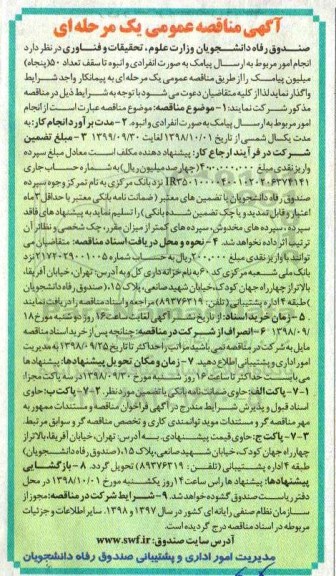 آگهی مناقصه عمومی یک مرحله ای
صندوق رفاه دانشجویان وزارت علوم، تحقیقات و فناوری در نظر دارد
انجام امور مربوط به ارسال پیامک به صورت انفرادی و انبوه تا سقف تعداد ۵۰ (پنجاه)
میلیون پیامک را از طریق مناقصه عمومی یک مرحله ای به پیمانکار واجد شرایط
واگذار نماید لذا از کلیه متقاضیان دعوت می شود با توجه به شرایط ذیل در مناقصه
مذکور شرکت نمایند: ۱- موضوع مناقصه: موضوع مناقصه عبارت است از انجام
امور مربوط به ارسال پیامک به صورت انفرادی و انبوه. ۲- مدت برآورد انجام کار: به
مدت یکسال شمسی از تاریخ ۱۳۹۸/۱۰/۰۱ لغایت ۱۳۹۹/۰۹/۳۰ ۳- مبلغ تضمین
شرکت در فرآیند ارجاع کار: پیشنهاد دهنده مکلف است معادل مبلغ سپرده
واریز نقدی مبلغ ۴۰۰,۰۰۰,۰۰۰ (چهارصد میلیون ریال) به شماره حساب جاری
نزد بانک مرکزی به نام تمرکز وجوه سپرده
صندوق رفاه دانشجویان یا تضمین های معتبر (ضمانت نامه بانکی معتبر با حداقل ۳ ماه
اعتبار و قابل تمدید و یا چک تضمین شده بانکی) را تسلیم نماید به پیشنهاد های فاقد
سپرده، سپرده های مخدوش، سپرده های کمتر از میزان مقرر، چک شخصی و نظائر آن
ترتیب اثر داده نخواهد شد. ۴- نحوه و محل دریافت اسناد مناقصه: متقاضیان می
توانند با واریز نقدی مبلغ ۲۰۰,۰۰۰ ریال به حساب شماره ۲۱۷۲۰۲۹۰۰۱۰۰۵ نزد
بانک ملی شعبه مرکزی کد ۶۰ به نام خزانه داری کل و به آدرس: تهران، خیابان آفریقا،
بالاتر از چهارراه جهان کودک، خیابان شهید صانعی، پلاک ۱۵، (صندوق رفاه دانشجویان
) طبقه ۴ اداره پشتیبانی (تلفن: ۸۹۳۷۶۳۱۹) مراجعه و اسناد مناقصه را دریافت نمایند
۵- زمان خرید اسناد: از تاریخ نشر آگهی لغایت ساعت ۱۶ روز دوشنبه مورخ ۱۸
/۱۳۹۸/۰۹ ۶- انصراف از شرکت در مناقصه: چنانچه پس از خرید اسناد مناقصه
مایل به شرکت در مناقصه نمی باشید مراتب را حداکثر تا تاریخ ۱۳۹۸/۰۹/۲۵ به مدیریت
امور اداری و پشتیبانی اطلاع دهید. ۷- زمان و مکان تحویل پیشنهادها: پیشنهادها
می بایست حداکثر تا ساعت ۱۶ روز شنبه مورخ ۱۳۹۸/۰۹/۳۰ در سه پاکت مجزا:
۱-۷- پاکت الف: حاوی ضمانت نامه بانکی یا تضمین مورد نظر. ۲-۷- پاکت ب: حاوی
اسناد قبول و پذیرش شرایط مندرج در آگهی فراخوان مناقصه و مستندات ممهور به
مهر مناقصه گر و مستندات موید توانمندی کاری و تخصص مناقصه گر و سوابق مرتبط
۳-۷- پاکت ج: حاوی قیمت پیشنهادی. به آدرس: تهران، خیابان آفریقا، بالاتر از
چهارراه جهان کودک، خیابان شهید صانعی، پلاک ۱۵، (صندوق رفاه دانشجویان)
طبقه ۴ اداره پشتیبانی (تلفن: ۸۹۳۷۶۳۱۹) تحویل گردد. ۸- بازگشایی
پیشنهادها: پیشنهاد ها راس ساعت ۱۴ روز یکشنبه مورخ ۱۳۹۸/۱۰/۰۱ در محل
دفتر ریاست صندوق گشوده خواهد شد. ۹- شرایط شرکت در مناقصه: مجوز از
سازمان نظام صنفی رایانه ای کشور در سال ۱۳۹۷ و ۱۳۹۸. سایر اطلاعات و جزئیات
مربوطه در اسناد مناقصه درج گردیده است.
آدرس سایت صندوق: www.swf.ir
مدیریت امور اداری و پشتیبانی صندوق رفاه دانشجویان